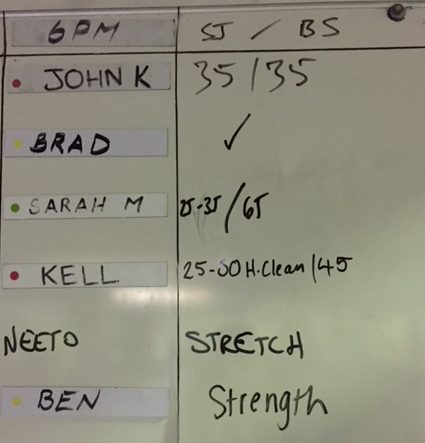 6PM SJ / BS
JOHN K 35/35
BRAD ✓
SARAH M 25-35/65
KELL 25-50 H.Clean/45
NEETO STRETCH
BEN Strength